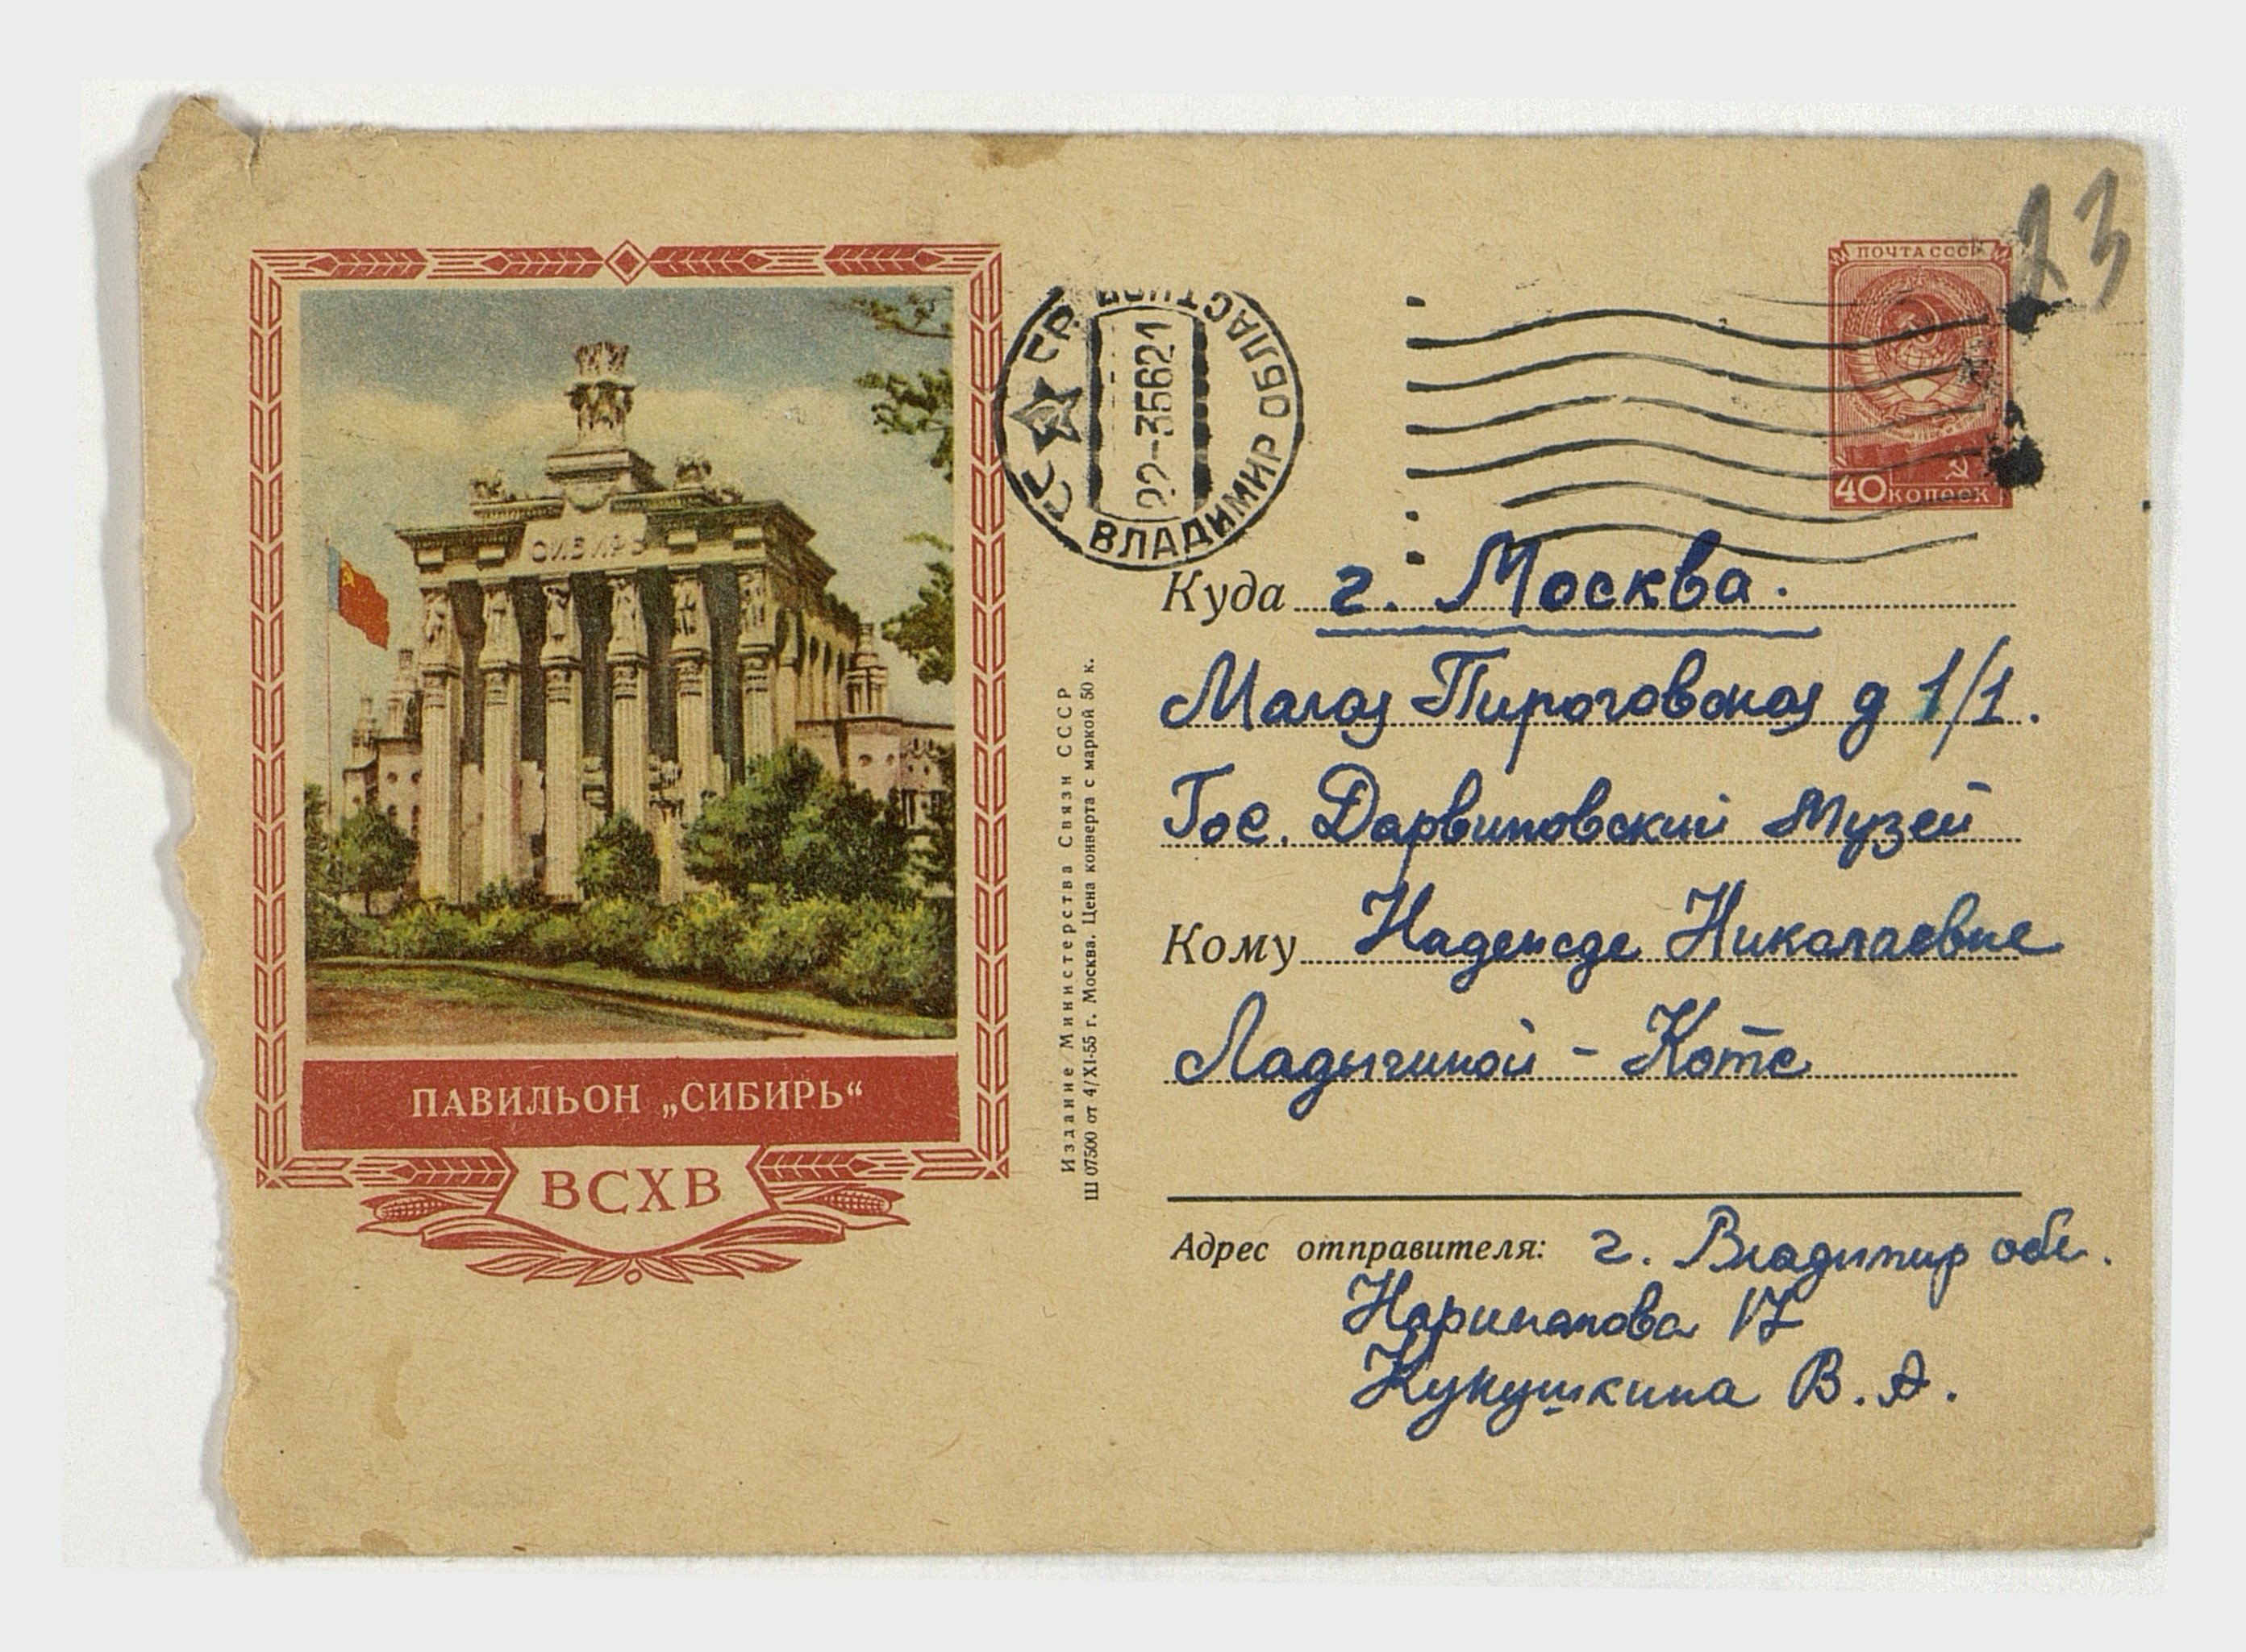 СИБИРЬ
ПАВИЛЬОН „СИБИРЬ“
ВСХВ
СССР
22-35621
ВЛАДИМИР ОБЛАСТ
Издание Министерства Связи СССР
Ш 07500 от 4/XI-55 г. Москва. Цена конверта с маркой 50 к.
ПОЧТА СССР
40 КОПЕЕК
23
Куда г. Москва.
Малая Пироговская д 1/1.
Гос. Дарвиновский Музей
Кому Надежде Николаевне
Ладыгиной - Котс
Адрес отправителя: г. Владимир обл.
Нариманова 17
Кукушкина В. А.